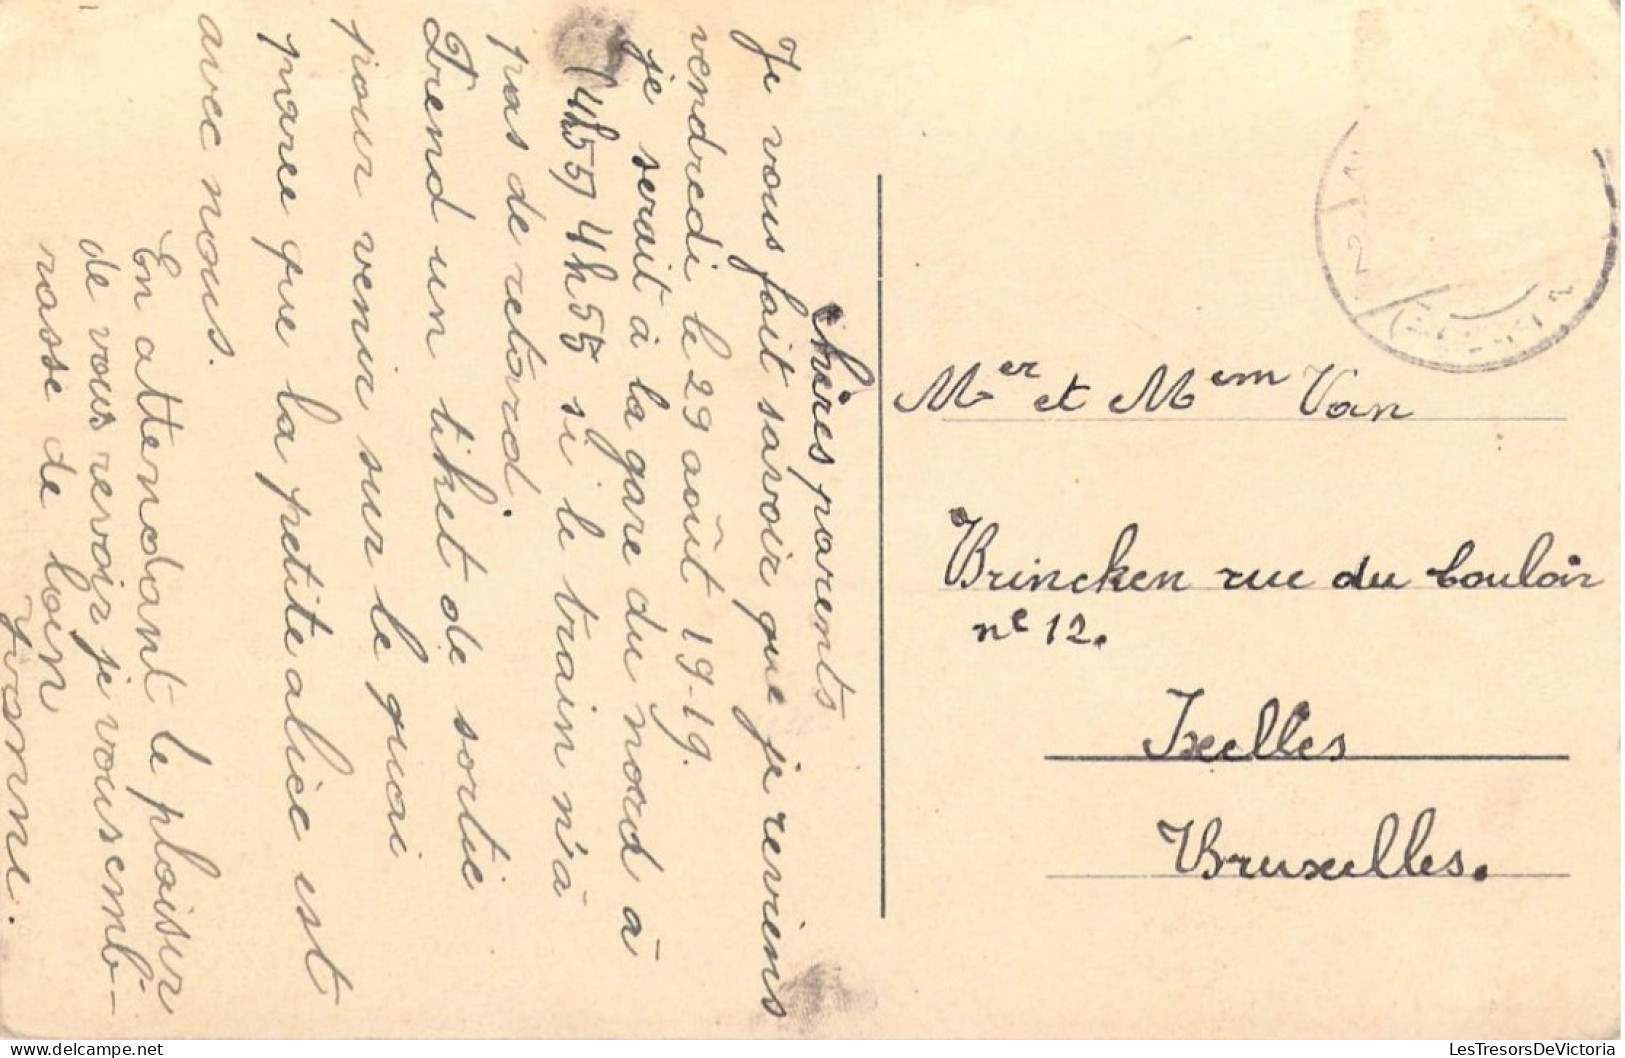 Chères parents
Je vous fait savoir que je reviens
vendredi le 29 août 19-19.
je serait à la gare du nord à
(4h55) 4h55 si le train n'à
pas de retard.
Prend un tiket de sortie
pour venir sur le quai
parce que la petite alice est
avec nous.
En attendant le plaisir
de vous revoir je vous emb-
rasse de loin
Yvonne.
Mer et Mem Van
Brincken rue du bouloir
ne 12.
Ixelles
Bruxelles.
LesTresorsDeVictoria